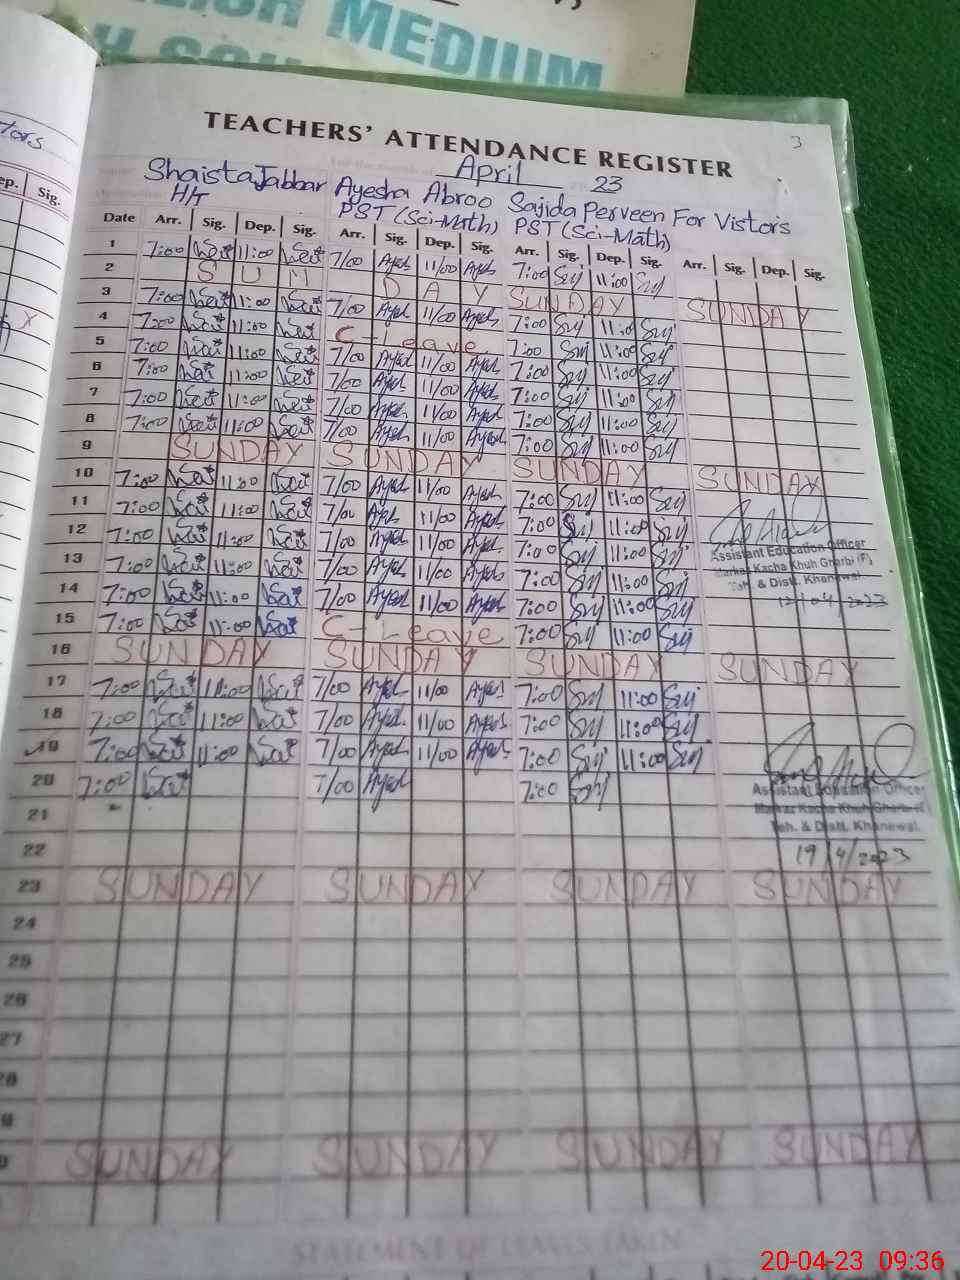 LISH MEDIUM
H SCH
tors
3
TEACHERS' ATTENDANCE REGISTER
April 23
Shaista Jabbar Ayesha Abroo Sajida Perveen For Vistors
H/T PST (Sci-Math) PST (Sci-Math)
ep. Sig.
Date Arr. Sig. Dep. Sig. Arr. Sig. Dep. Sig. Arr. Sig. Dep. Sig. Arr. Sig. Dep. Sig.
1 7:00 11:00 7/00 Ayesh 11/00 Ayesh 7:00 Suj 11:00 Suj
2 SUN DAY SUNDAY SUNDAY
3 7:00 11:00 7/00 Ayesh 11/00 Ayesh 7:00 Suj 11:00 Suj
4 7:00 11:00 C-Leave 7:00 Suj 11:00 Suj
5 7:00 11:00 7/00 Ayesh 11/00 Ayesh 7:00 Suj 11:00 Suj
6 7:00 11:00 7/00 Ayesh 11/00 Ayesh 7:00 Suj 11:00 Suj
7 7:00 11:00 7/00 Ayesh 11/00 Ayesh 7:00 Suj 11:00 Suj
8 7:00 11:00 7/00 Ayesh 11/00 Ayesh 7:00 Suj 11:00 Suj
9 SUNDAY SUNDAY SUNDAY SUNDAY
10 7:00 11:00 7/00 Ayesh 11/00 Ayesh 7:00 Suj 11:00 Suj
11 7:00 11:00 7/00 Ayesh 11/00 Ayesh 7:00 Suj 11:00 Suj
12 7:00 11:00 7/00 Ayesh 11/00 Ayesh 7:00 Suj 11:00 Suj
Assistant Education Officer
Markaz Kacha Khuh Gharbi (F)
Teh. & Distt. Khanewal
12/04/2023
13 7:00 11:00 7/00 Ayesh 11/00 Ayesh 7:00 Suj 11:00 Suj
14 7:00 11:00 7/00 Ayesh 11/00 Ayesh 7:00 Suj 11:00 Suj
15 7:00 11:00 C-Leave 7:00 Suj 11:00 Suj
16 SUNDAY SUNDAY SUNDAY SUNDAY
17 7:00 11:00 7/00 Ayesh 11/00 Ayesh 7:00 Suj 11:00 Suj
18 7:00 11:00 7/00 Ayesh 11/00 Ayesh 7:00 Suj 11:00 Suj
19 7:00 11:00 7/00 Ayesh 11/00 Ayesh 7:00 Suj 11:00 Suj
20 7:00 7/00 Ayesh 7:00 Suj
Assistant Education Officer
Markaz Kacha Khuh Gharbi (F)
Teh. & Distt. Khanewal
19/4/2023
21
22
23 SUNDAY SUNDAY SUNDAY SUNDAY
24
25
26
27
SUNDAY SUNDAY SUNDAY SUNDAY
STATEMENT OF LEAVES TAKEN
20-04-23 09:36